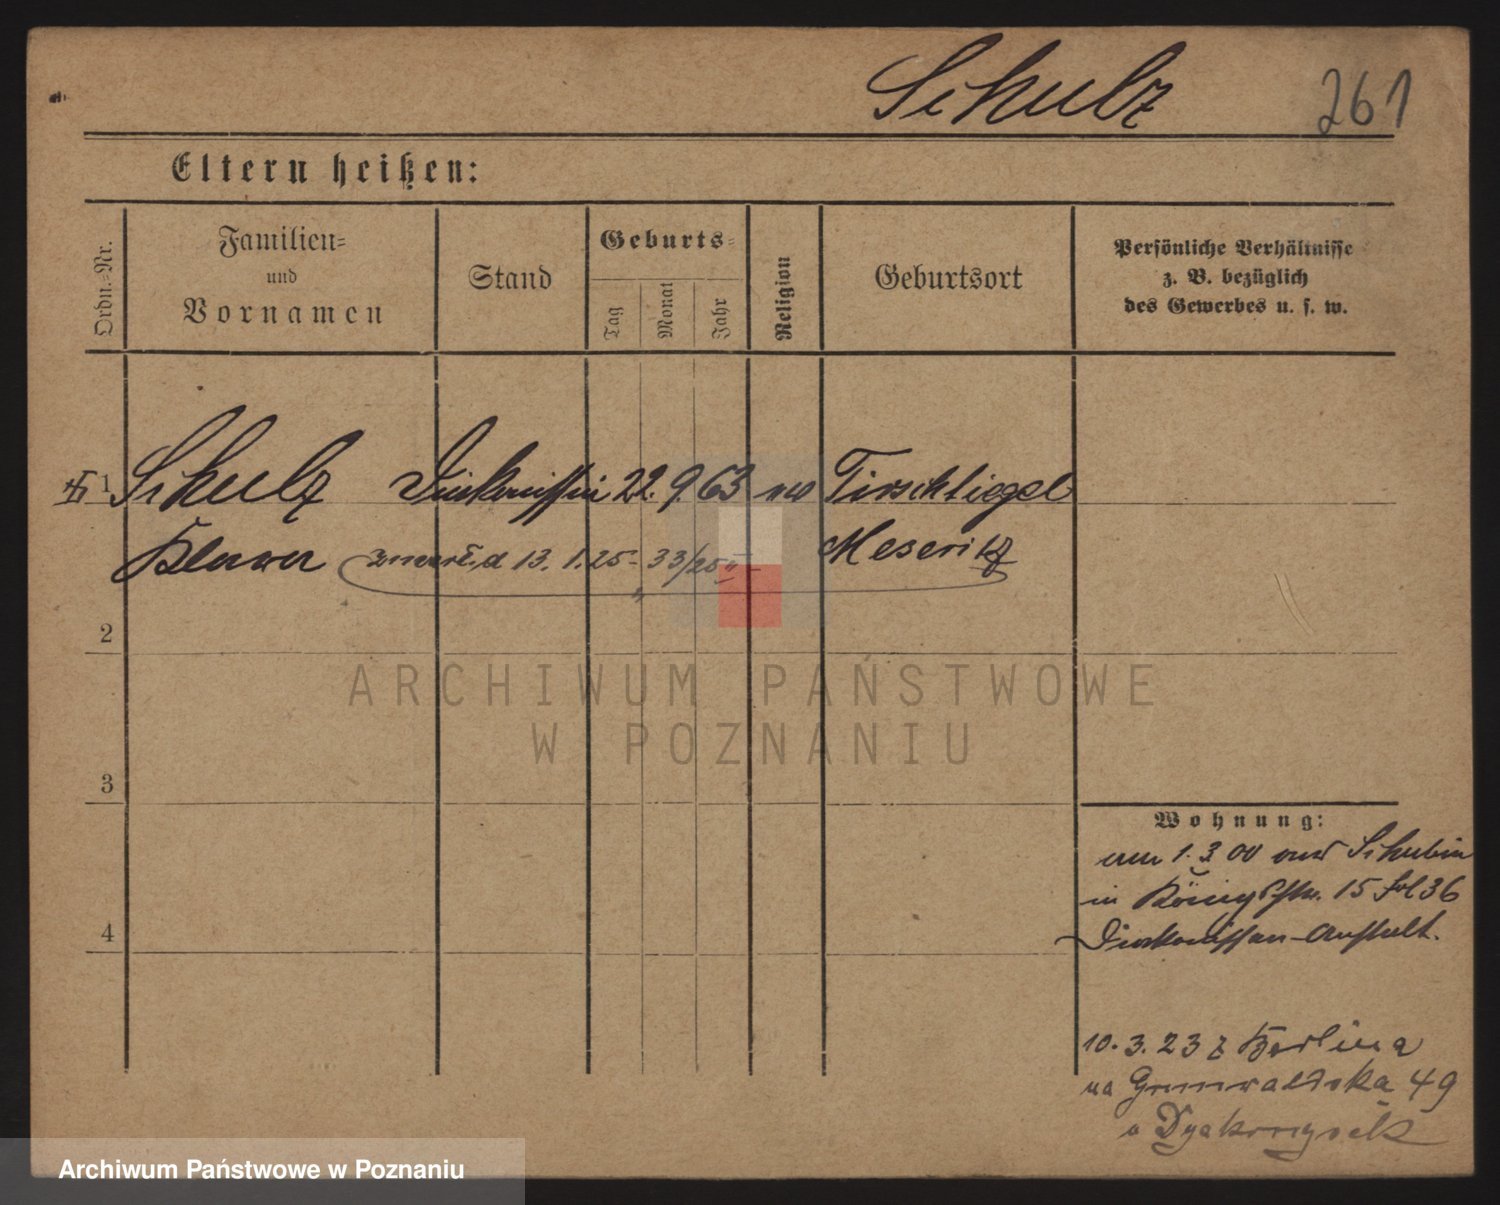 Schulz 261
Eltern heißen:
Ordn.-Nr.
Familien-
und
Vornamen
Stand
Geburts-
Tag
Monat
Jahr
Religion
Geburtsort
Persönliche Verhältnisse
z. B. bezüglich
des Gewerbes u. s. w.
1 Schulz Diakonissin 22. 9. 63 ev Tirschtiegel
Klara zmarł. d 13. 1. 25 - 33/25 Meseritz
2
3
4
ARCHIWUM PAŃSTWOWE
W POZNANIU
Wohnung:
am 1. 3 00 aus Schubin
in Königstr. 15 fol 36
Diakonissen-Anstalt.
10. 3. 23 z Berlina
na Grunwaldska 49
Archiwum Państwowe w Poznaniu